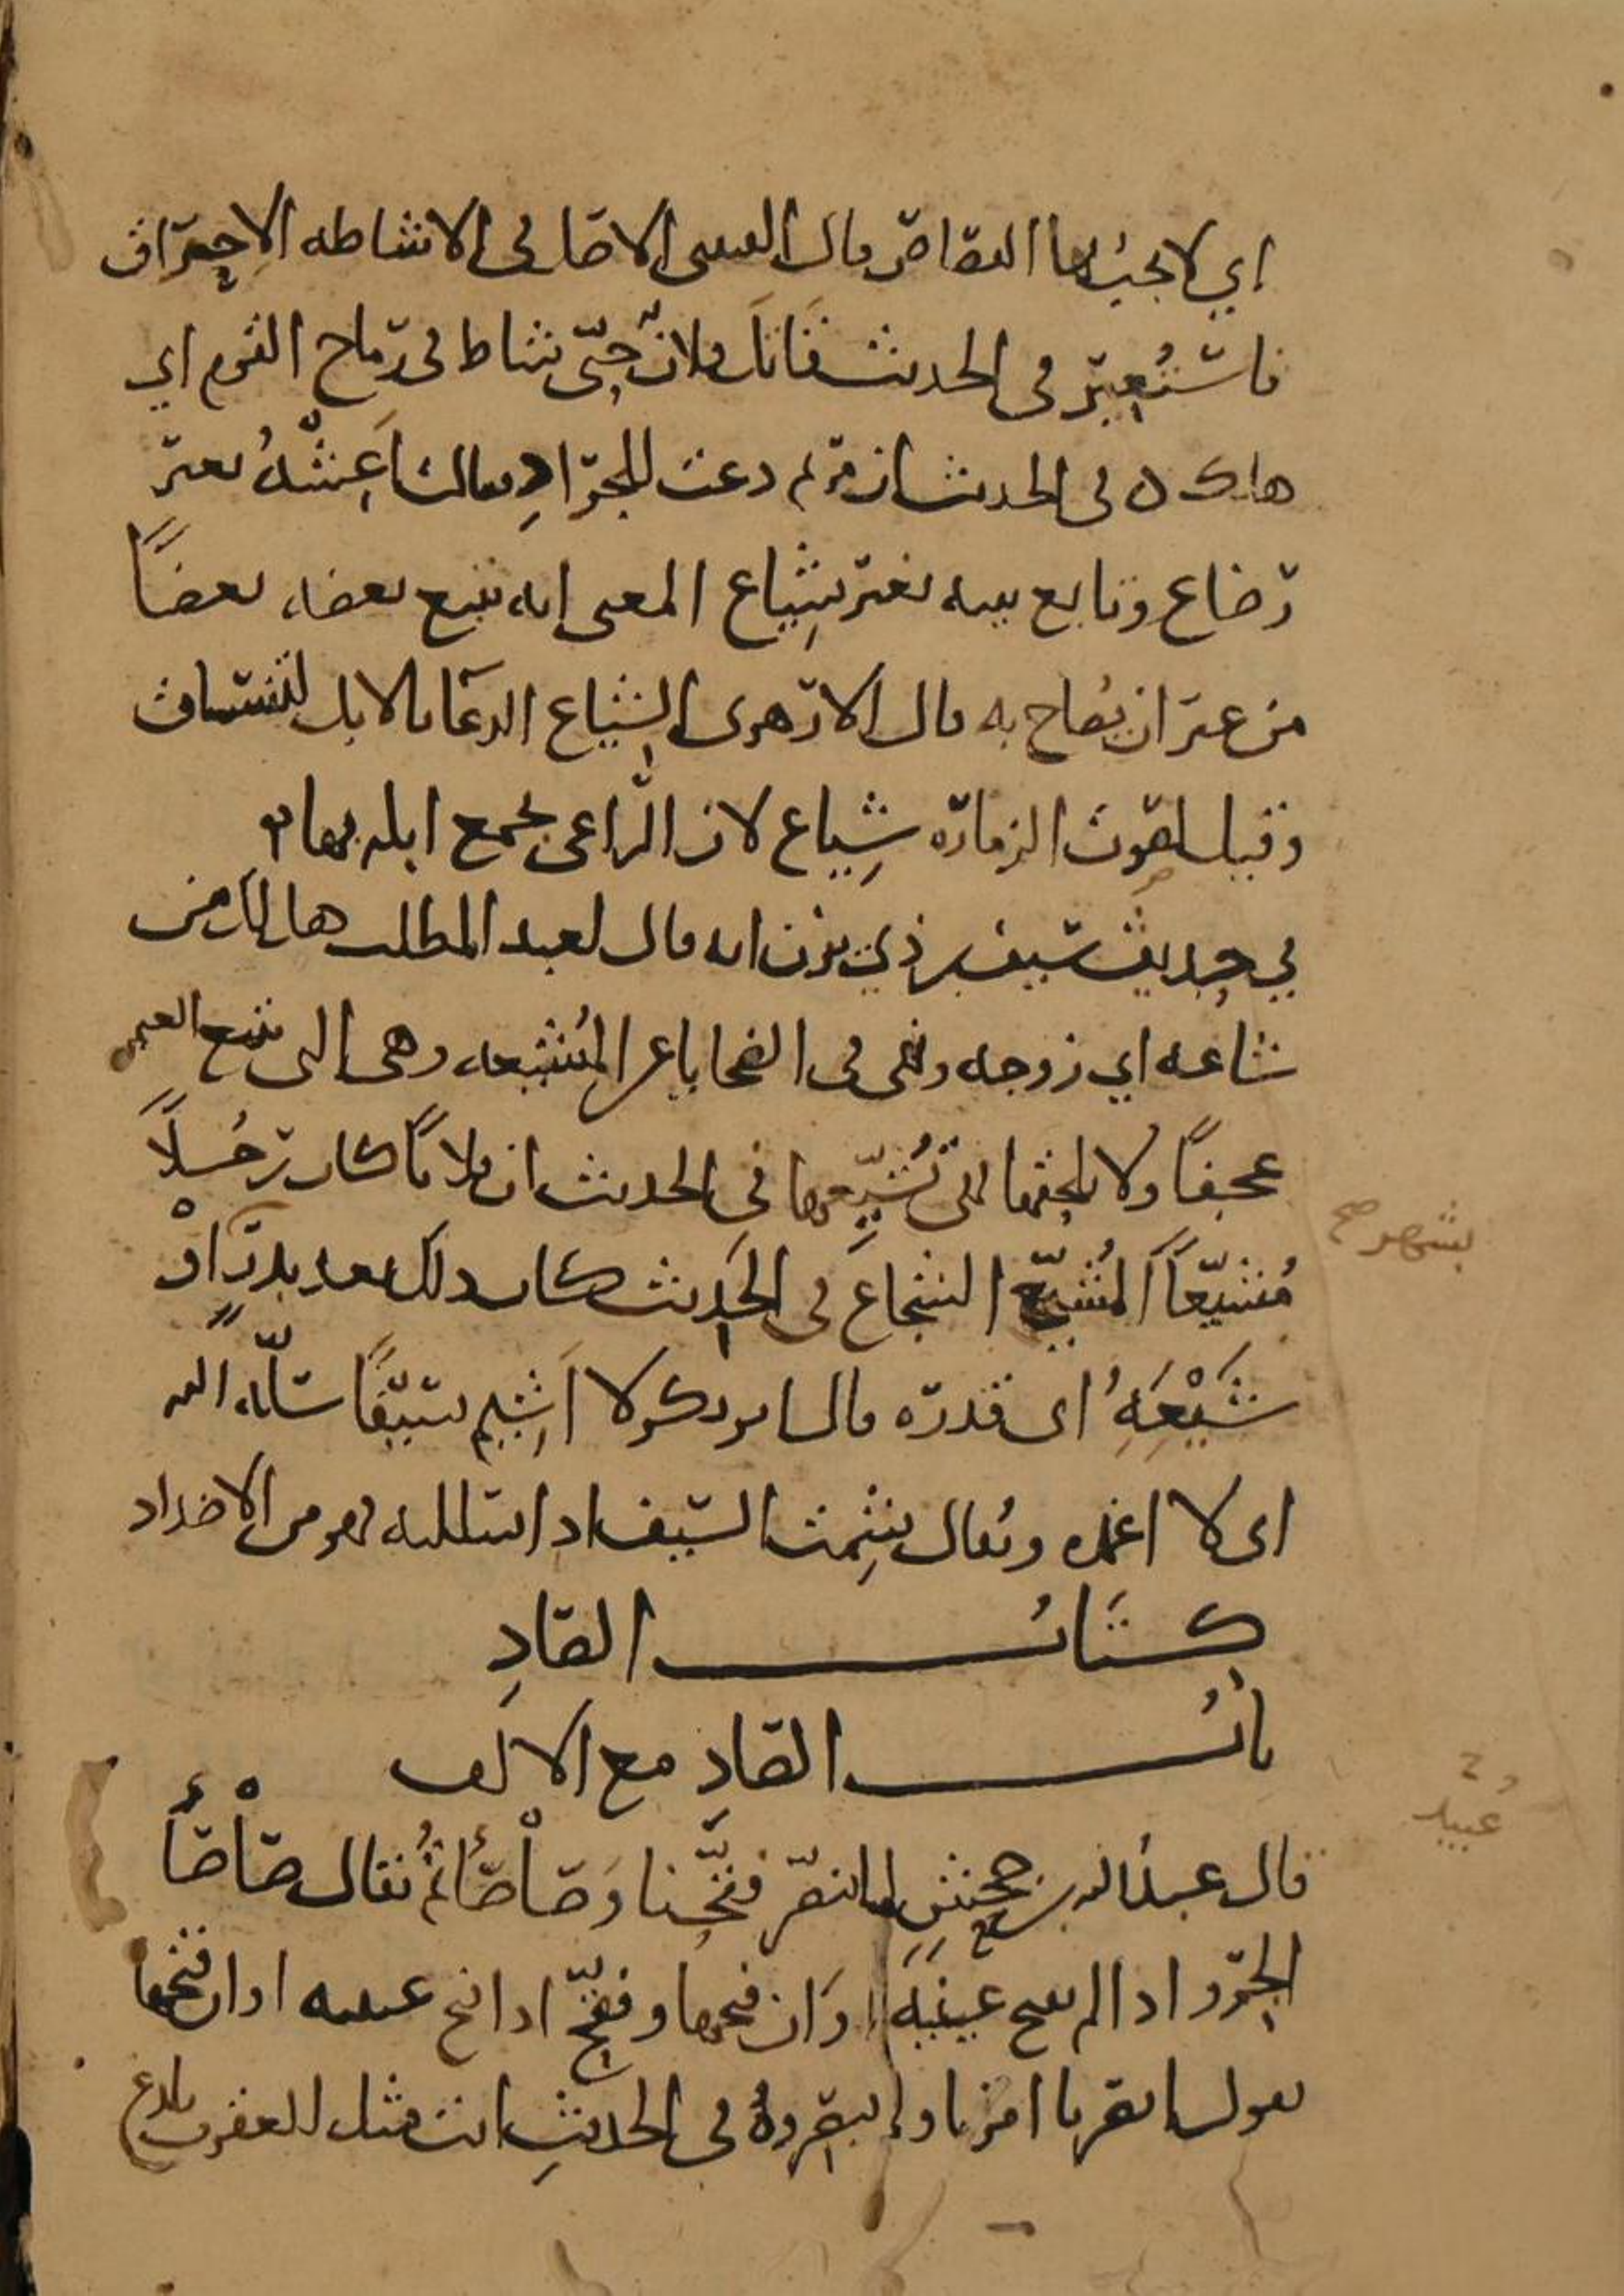 اي لا يجب بها القصاص قال القتيبي الاصل في الاشاطه الاحتراق
فاستعير في الحديث قاتل فلان حتى شاط في رماح القوم اي
هلك في الحديث ان مريم دعت للجراد فقالت اعشه بغير
رضاع وتابع بينه بغير شِيَاع المعنى انه يتبع بعضه بعضًا
من غير ان يصاح به قال الازهري الشياع الدعا بالابل لتنساق
وقيل لصوت الزماره شِياع لان الراعي يجمع ابله بها
في حديث سيف بن ذي يزن انه قال لعبد المطلب هل لك من
شاعه اي زوجه ونهى في الضحايا عن المُشَيِّعه وهي التي تتبع الغنم
عجفًا ولا يلحقها التي تُشَيِّعها في الحديث ان فلانًا كان رجُلًا
مُشَيَّعًا المُشَيَّع الشجاع في الحديث كان ذلك بعد بدر او
بشهر صح
شَيْعِهِ اي قدره قال ابو بكر لا اَشِيم سيفًا سلّه الله
اي لا اغمده ويقال شِمت السيف اذا استللته فهو من الاضداد
كتاب الصادِ
باب الصادِ مع الالف
عبيد
قال عبد الله بن جحشٍ لما تنصر فقّحنا وَصَأصَأتُم يُقال صَأصَأ
الجرو اذا لم يفتح عينيه اوان فتحها وفقّح اذا فتح عينيه اوان فتحها
يقول ابصرنا امرنا ولم تبصروهُ في الحديثِ انت مثل العقرب تلدغ